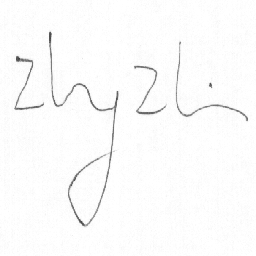 Zhy Zhi